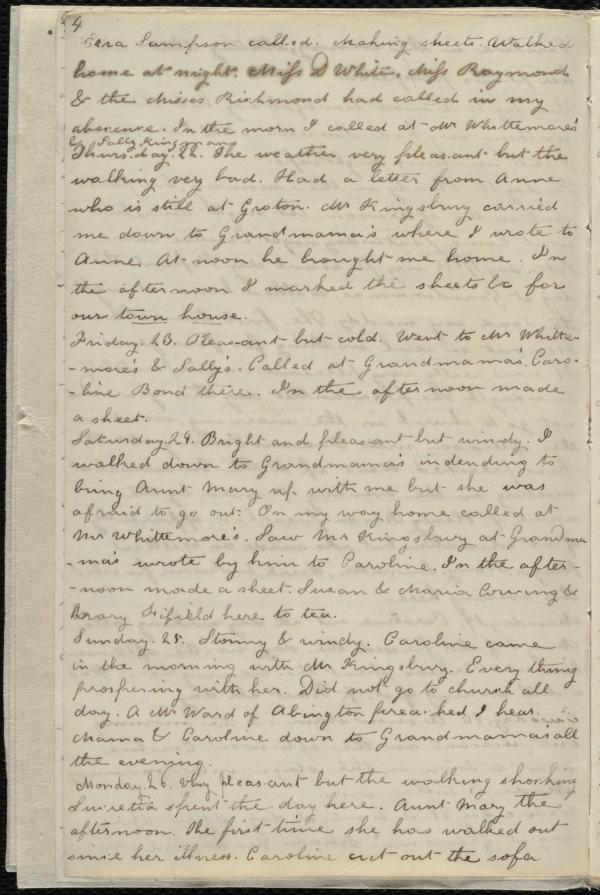 4
Sara Sampson called. Making sheets. Walked
home at night. Miss D White, Miss Raymond
& the Misses Richmond had called in my
abscence. In the morn I called at Mr Whittemore's
& Sally Kingman
Thurs.day. 22. The weather very pleas.ant but the
walking very bad. Had a letter from Anne
who is still at Groton. Mr Kingsbury carried
me down to Grandmama's where I wrote to
Anne. At noon he brought me home. In
the afternoon I marked the sheets &c for
our town house.
Friday. 23. Pleas-ant but cold. Went to Mr Whitte-
-more's & Sally's. Called at Grandmama's. Caro-
-line Bond there. In the afternoon made
a sheet.
Saturday. 24. Bright and pleas-ant but windy. I
walked down to Grandmama's indending to
bring Aunt Mary up with me but she was
afraid to go out. On my way home called at
Mr Whittemore's. Saw Mr Kingsbury at Grandma
-ma's wrote by him to Caroline. In the after-
-noon made a sheet. Susan & Maria Cowing &
Mary Fifield here to tea.
Sunday. 25. Stormy & windy. Caroline came
in the morning with Mr Kingsbury. Every thing
prospering with her. Did not go to church all
day. A Mr Ward of Abington preached I hear.
Mama & Caroline down to Grandmama's all
the evening.
Monday. 26. Very pleas.ant but the walking shocking
Lucretia spent the day here. Aunt Mary the
afternoon. The first time she has walked out
since her illness. Caroline cut out the sofa